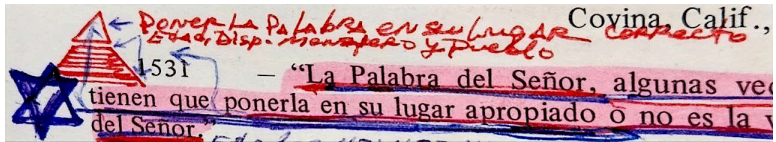 Covina, Calif.,
PONER LA PALABRA EN SU LUGAR CORRECTO
EDAD, DISP. MENSAJERO Y PUEBLO
1531 – “La Palabra del Señor, algunas vec
tienen que ponerla en su lugar apropiado o no es la v
del Señor.”